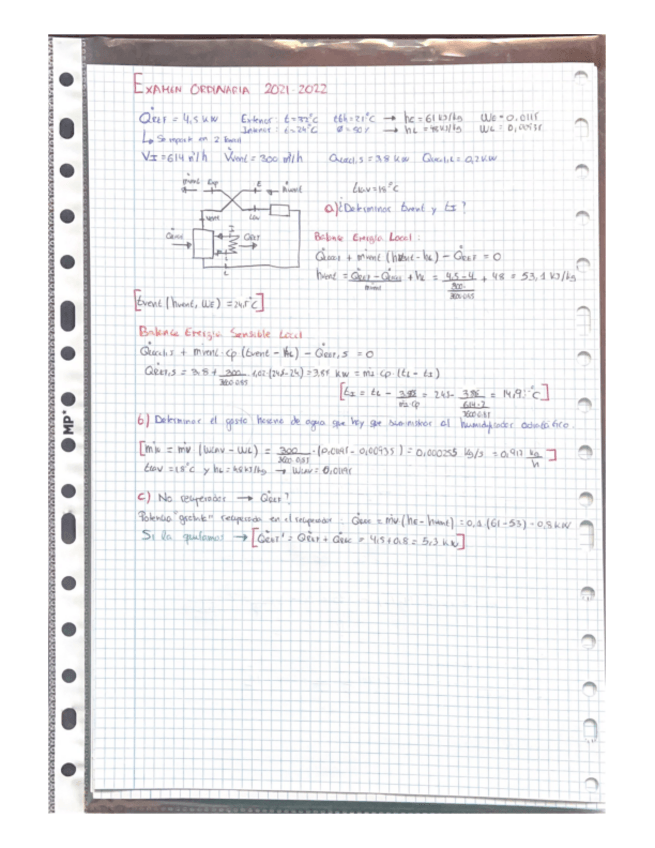 EXAMEN ORDINARIA 2021-2022
Q̇EXT = 4,5 kW Exterior: t=32°C tbh=21°C → hE=61 kJ/kg WE=0,0115
Interior: t=24°C Ø=50% → hL=48 kJ/kg WL=0,00935
↳ Se imparte en 2 local
V̇I=614 m³/h V̇vent=300 m³/h Q̇local,S=3,8 kW Q̇local,L=0,2 kW
tLAV=18°C
a) ¿Determinar tvent y tI?
ṁvent Exp E ṁvent
vent LAV
Balance Energía Local:
Q̇local + ṁvent (hvent-hL) - Q̇EXT = 0
hvent = (Q̇EXT - Q̇local)/ṁvent + hL = (4,5-4)/(300/(3600·0,85)) + 48 = 53,1 kJ/kg
[tvent (hvent, WE) = 24,5°C]
Balance Energía Sensible Local
Q̇local,S + ṁvent·cp (tvent - tL) - Q̇EXT,S = 0
Q̇EXT,S = 3,8 + 300/(3600·0,85) · 1,02 (24,5-24) = 3,85 kW = ṁI·cp·(tL-tI)
[tI = tL - 3,85/(ṁI·cp) = 24 - = 14,9°C]
b) Determinar el gasto horario de agua que hay que suministrar al humidificador adiabático.
[ṁw = ṁv (WLAV - WL) = 300/(3600·0,85) · (0,0119 - 0,00935) = 0,000255 kg/s = 0,917 kg/h]
tLAV=18°C y hL=48 kJ/kg → WLAV=0,0119
c) No recuperador → Q̇EXT'?
Potencia "gratuita" recuperada en el recuperador. Q̇REC = ṁv (hE - hvent) = 0,1 (61-53) = 0,8 kW
Si la quitamos → [Q̇EXT' = Q̇EXT + Q̇REC = 4,5+0,8 = 5,3 kW]
MP